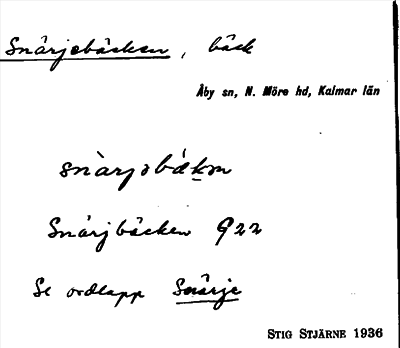 Snärjebäcken, bäck
Åby sn, N. Möre hd, Kalmar län
snàrjobä́kₑn
Snärjbäcken G22
Se ordlapp Snärje
STIG STJÄRNE 1936